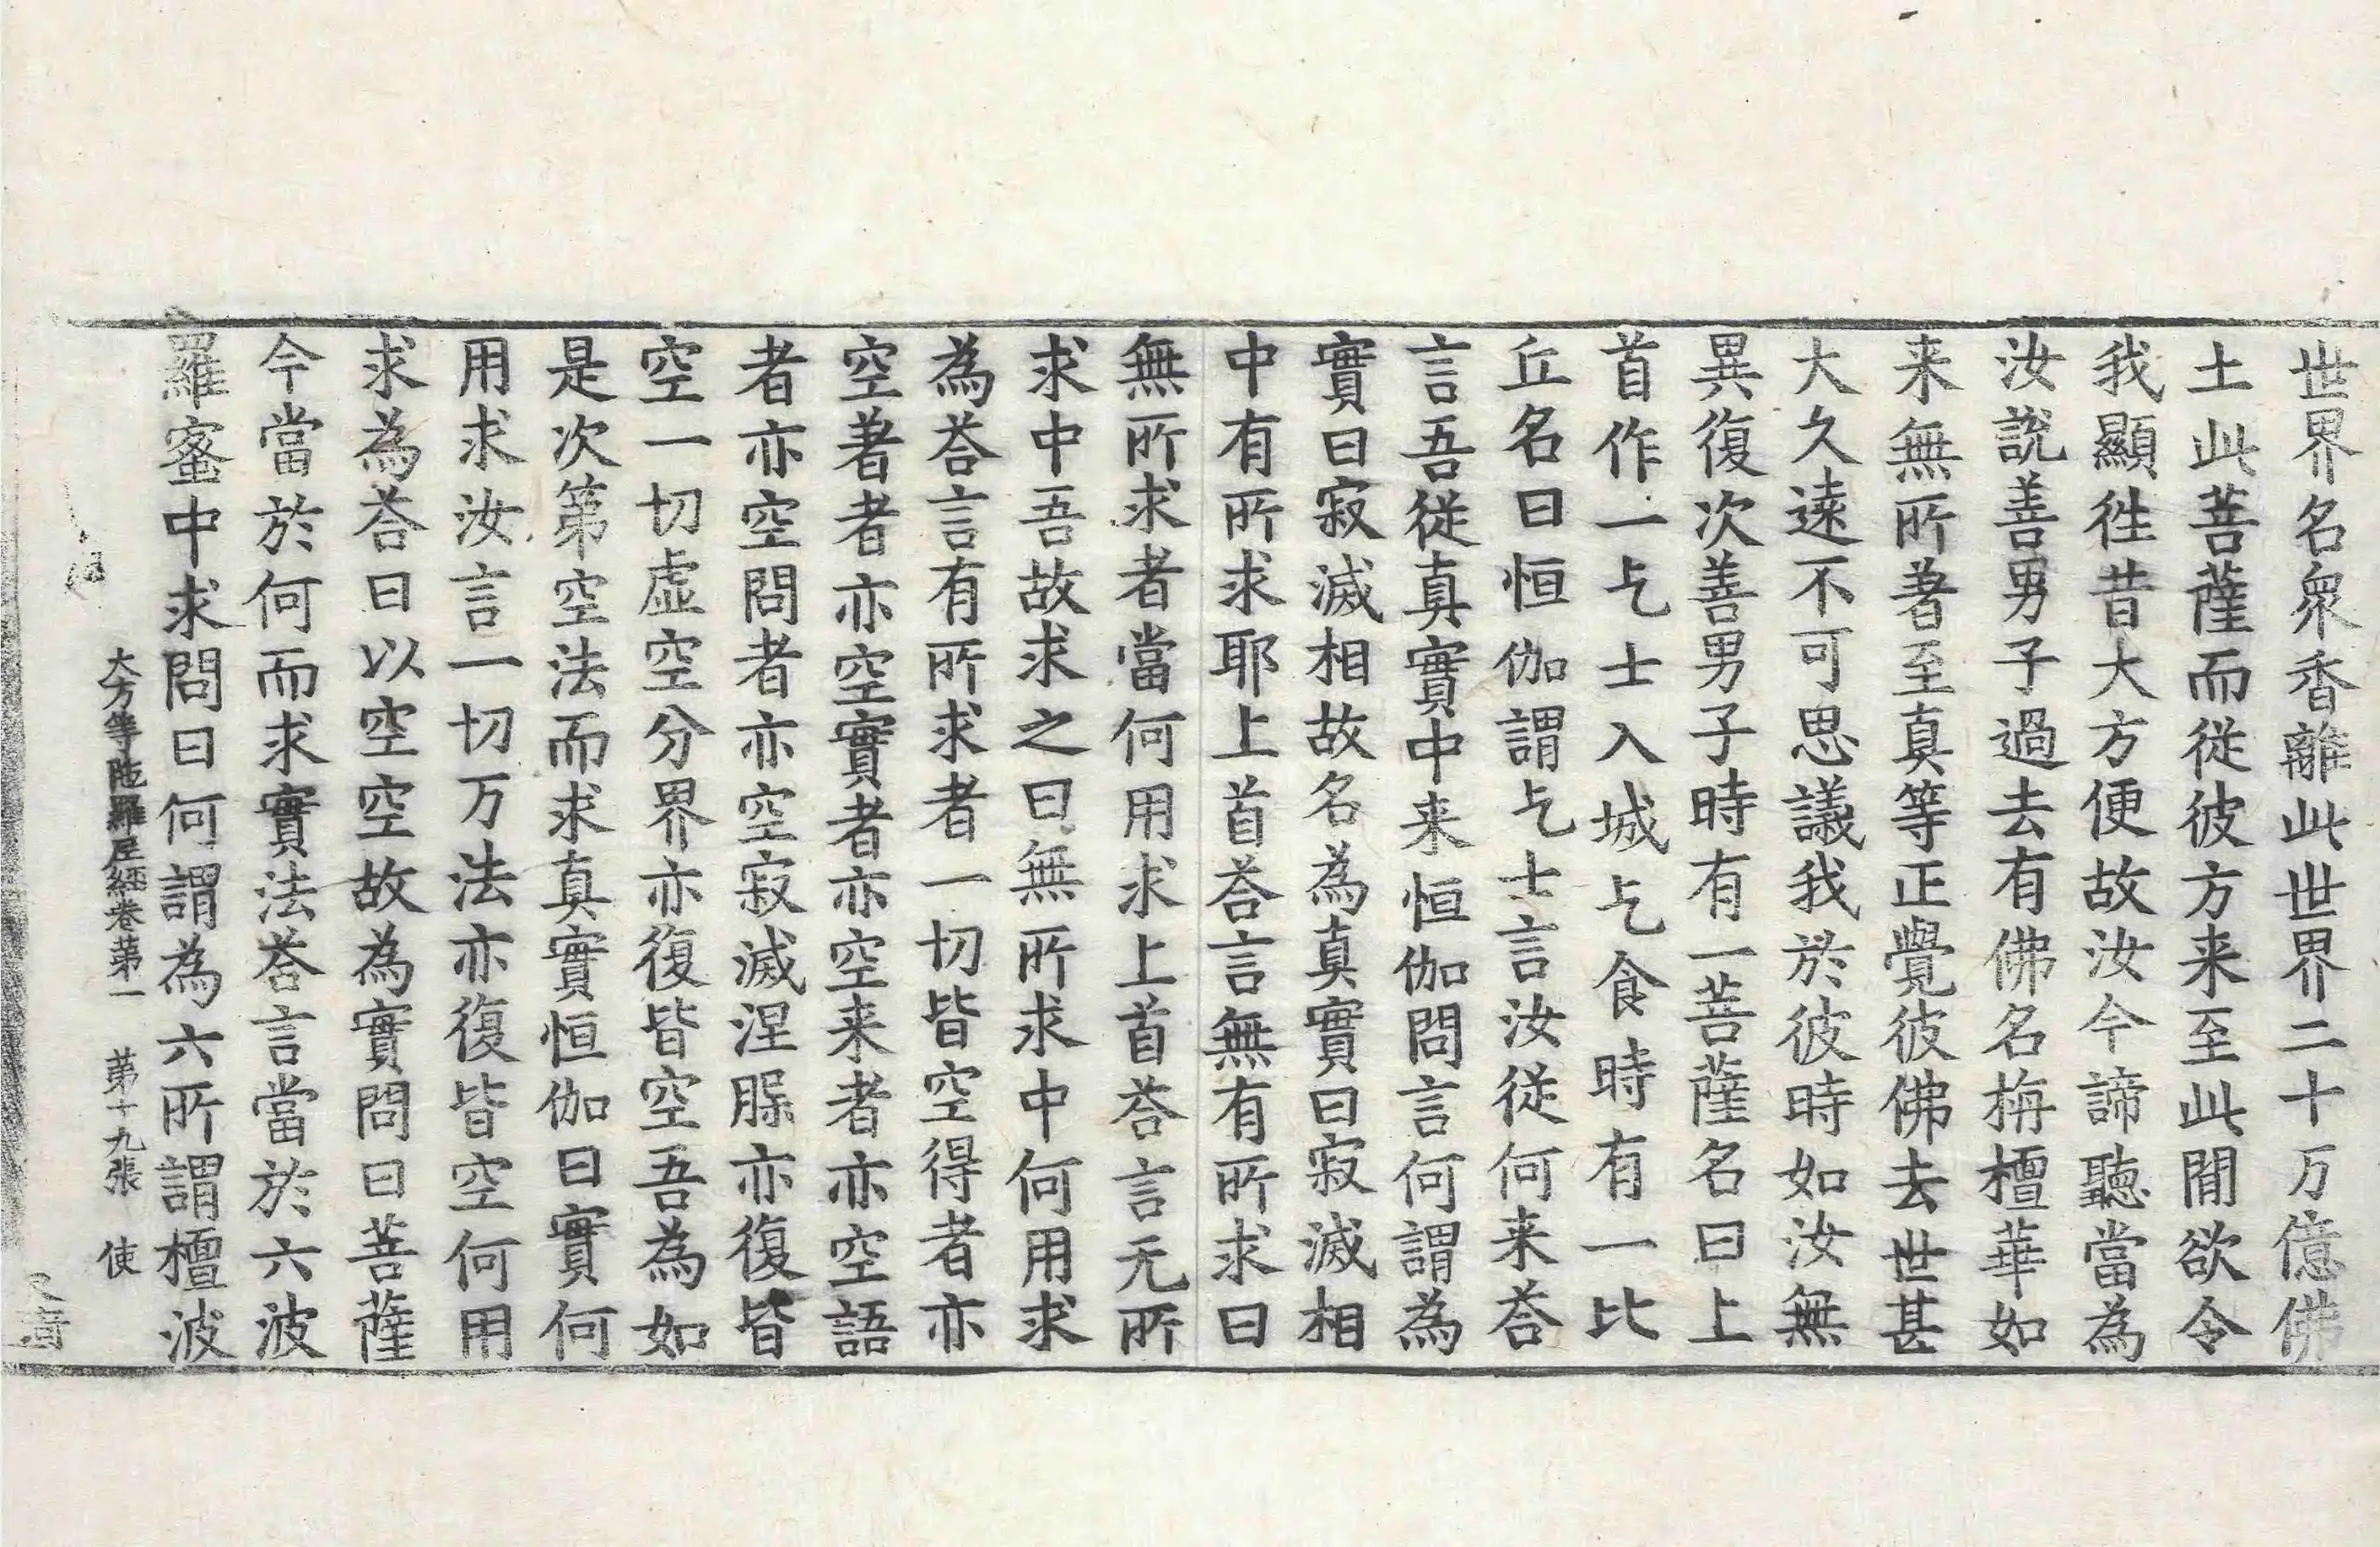 世界名衆香離此世界二十万億佛
土此菩薩而從彼方来至此閒欲令
我顯徃昔大方便故汝今諦聽當為
汝說善男子過去有佛名栴檀華如
来無所著至真等正覺彼佛去世甚
大久遠不可思議我於彼時如汝無
異復次善男子時有一菩薩名曰上
首作一乞士入城乞食時有一比
丘名曰恒伽謂乞士言汝從何来荅
言吾從真實中来恒伽問言何謂為
實曰寂滅相故名為真實曰寂滅相
中有所求耶上首荅言無有所求曰
無所求者當何用求上首荅言无所
求中吾故求之曰無所求中何用求
為荅言有所求者一切皆空得者亦
空著者亦空實者亦空来者亦空語
者亦空問者亦空寂滅涅脲亦復皆
空一切虛空分界亦復皆空吾為如
是次第空法而求真實恒伽曰實何
用求汝言一切万法亦復皆空何用
求為荅曰以空空故為實問曰菩薩
今當於何而求實法荅言當於六波
羅蜜中求問曰何謂為六所謂檀波
大方等陁羅尼經卷第一 第十九張 使